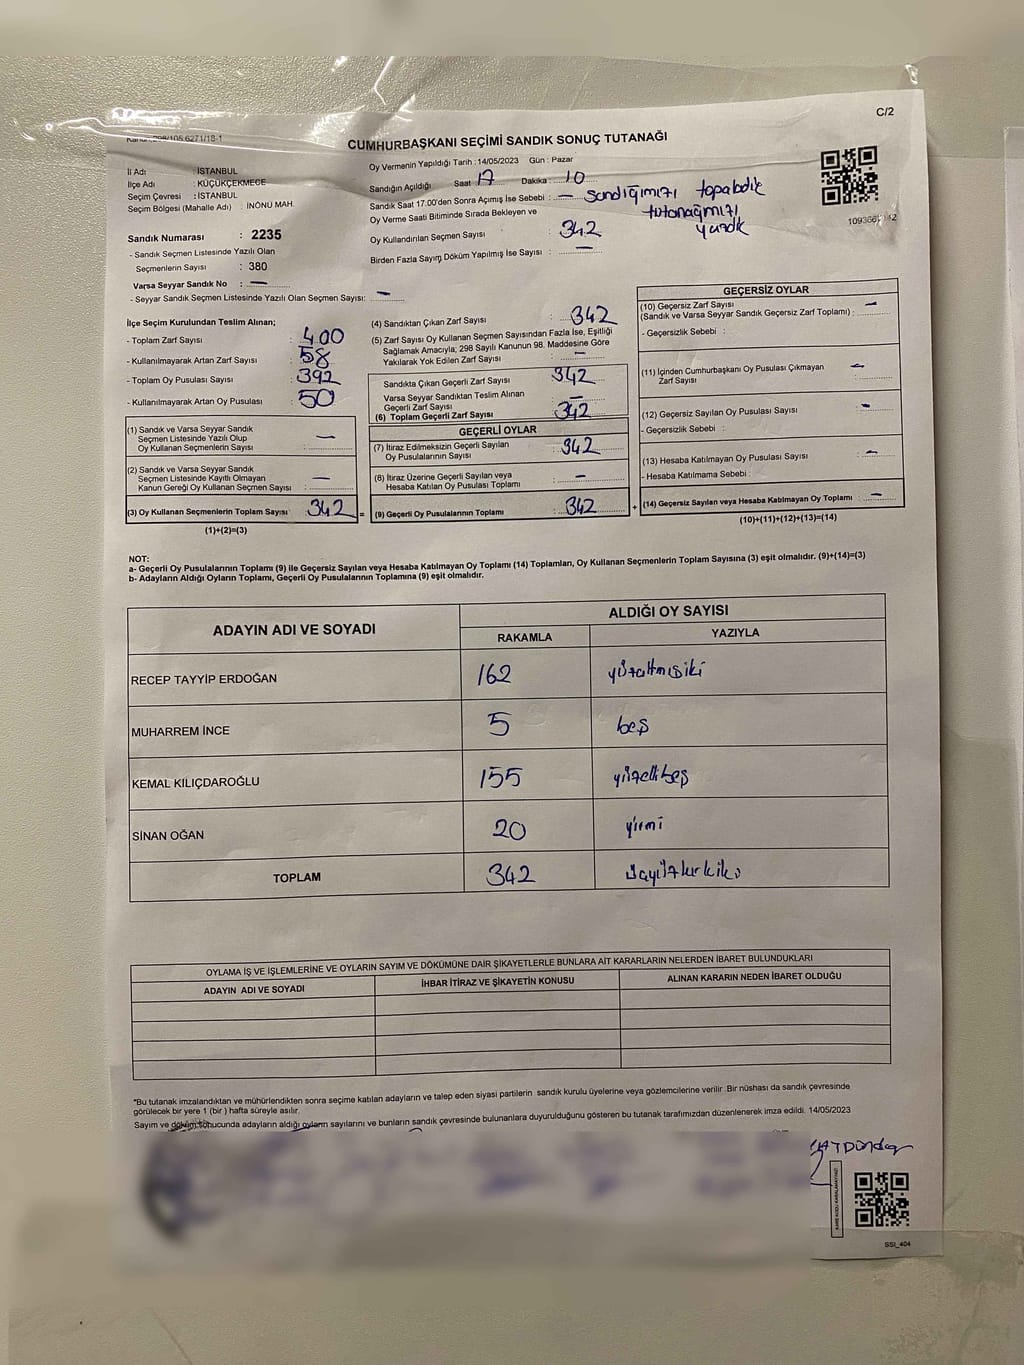 C/2
CUMHURBAŞKANI SEÇİMİ SANDIK SONUÇ TUTANAĞI
İl Adı : İSTANBUL
İlçe Adı : KÜÇÜKÇEKMECE
Seçim Çevresi : İSTANBUL
Seçim Bölgesi (Mahalle Adı) : İNÖNÜ MAH.
Sandık Numarası : 2235
- Sandık Seçmen Listesinde Yazılı Olan
Seçmenlerin Sayısı : 380
Varsa Seyyar Sandık No : —
- Seyyar Sandık Seçmen Listesinde Yazılı Olan Seçmen Sayısı: —
Oy Vermenin Yapıldığı Tarih : 14/05/2023 Gün : Pazar
Sandığın Açıldığı Saat 17 Dakika 10
Sandık Saat 17.00'den Sonra Açımış İse Sebebi : — Sandığımızı topaladık
tutanağımızı
yazdık
Oy Verme Saati Bitiminde Sırada Bekleyen ve
Oy Kullandırılan Seçmen Sayısı : 342
Birden Fazla Sayım Döküm Yapılmış İse Sayısı : —
İlçe Seçim Kurulundan Teslim Alınan;
- Toplam Zarf Sayısı : 400
- Kullanılmayarak Artan Zarf Sayısı : 58
- Toplam Oy Pusulası Sayısı : 392
- Kullanılmayarak Artan Oy Pusulası : 50
(1) Sandık ve Varsa Seyyar Sandık
Seçmen Listesinde Yazılı Olup
Oy Kullanan Seçmenlerin Sayısı : —
(2) Sandık ve Varsa Seyyar Sandık
Seçmen Listesinde Kayıtlı Olmayan
Kanun Gereği Oy Kullanan Seçmen Sayısı : —
(3) Oy Kullanan Seçmenlerin Toplam Sayısı : 342 =
(1)+(2)=(3)
(4) Sandıktan Çıkan Zarf Sayısı : 342
(5) Zarf Sayısı Oy Kullanan Seçmen Sayısından Fazla İse, Eşitliği
Sağlamak Amacıyla, 298 Sayılı Kanunun 98. Maddesine Göre
Yakılarak Yok Edilen Zarf Sayısı : —
Sandıkta Çıkan Geçerli Zarf Sayısı : 342
Varsa Seyyar Sandıktan Teslim Alınan
Geçerli Zarf Sayısı : —
(6) Toplam Geçerli Zarf Sayısı : 342
GEÇERLİ OYLAR
(7) İtiraz Edilmeksizin Geçerli Sayılan
Oy Pusulalarının Sayısı : 342
(8) İtiraz Üzerine Geçerli Sayılan veya
Hesaba Katılan Oy Pusulası Toplamı : —
(9) Geçerli Oy Pusulalarının Toplamı : 342 +
GEÇERSİZ OYLAR
(10) Geçersiz Zarf Sayısı
(Sandık ve Varsa Seyyar Sandık Geçersiz Zarf Toplamı) : —
- Geçersizlik Sebebi :
(11) İçinden Cumhurbaşkanı Oy Pusulası Çıkmayan
Zarf Sayısı : —
(12) Geçersiz Sayılan Oy Pusulası Sayısı : —
- Geçersizlik Sebebi :
(13) Hesaba Katılmayan Oy Pusulası Sayısı : —
- Hesaba Katılmama Sebebi :
(14) Geçersiz Sayılan veya Hesaba Katılmayan Oy Toplamı : —
(10)+(11)+(12)+(13)=(14)
NOT:
a- Geçerli Oy Pusulalarının Toplamı (9) ile Geçersiz Sayılan veya Hesaba Katılmayan Oy Toplamı (14) Toplamları, Oy Kullanan Seçmenlerin Toplam Sayısına (3) eşit olmalıdır. (9)+(14)=(3)
b- Adayların Aldığı Oyların Toplamı, Geçerli Oy Pusulalarının Toplamına (9) eşit olmalıdır.
ADAYIN ADI VE SOYADI
ALDIĞI OY SAYISI
RAKAMLA YAZIYLA
RECEP TAYYİP ERDOĞAN 162 yüzaltmışiki
MUHARREM İNCE 5 beş
KEMAL KILIÇDAROĞLU 155 yüzellibeş
SİNAN OĞAN 20 yirmi
TOPLAM 342 üçyüzkırkiki
OYLAMA İŞ VE İŞLEMLERİNE VE OYLARIN SAYIM VE DÖKÜMÜNE DAİR ŞİKAYETLERLE BUNLARA AİT KARARLARIN NELERDEN İBARET BULUNDUKLARI
ADAYIN ADI VE SOYADI İHBAR İTİRAZ VE ŞİKAYETİN KONUSU ALINAN KARARIN NEDEN İBARET OLDUĞU
*Bu tutanak imzalandıktan ve mühürlendikten sonra seçime katılan adayların ve talep eden siyasi partilerin sandık kurulu üyelerine veya gözlemcilerine verilir. Bir nüshası da sandık çevresinde
görülecek bir yere 1 (bir) hafta süreyle asılır.
Sayım ve döküm sonucunda adayların aldığı oyların sayılarını ve bunların sandık çevresinde bulunanlara duyurulduğunu gösteren bu tutanak tarafımızdan düzenlenerek imza edildi. 14/05/2023
SSI_404